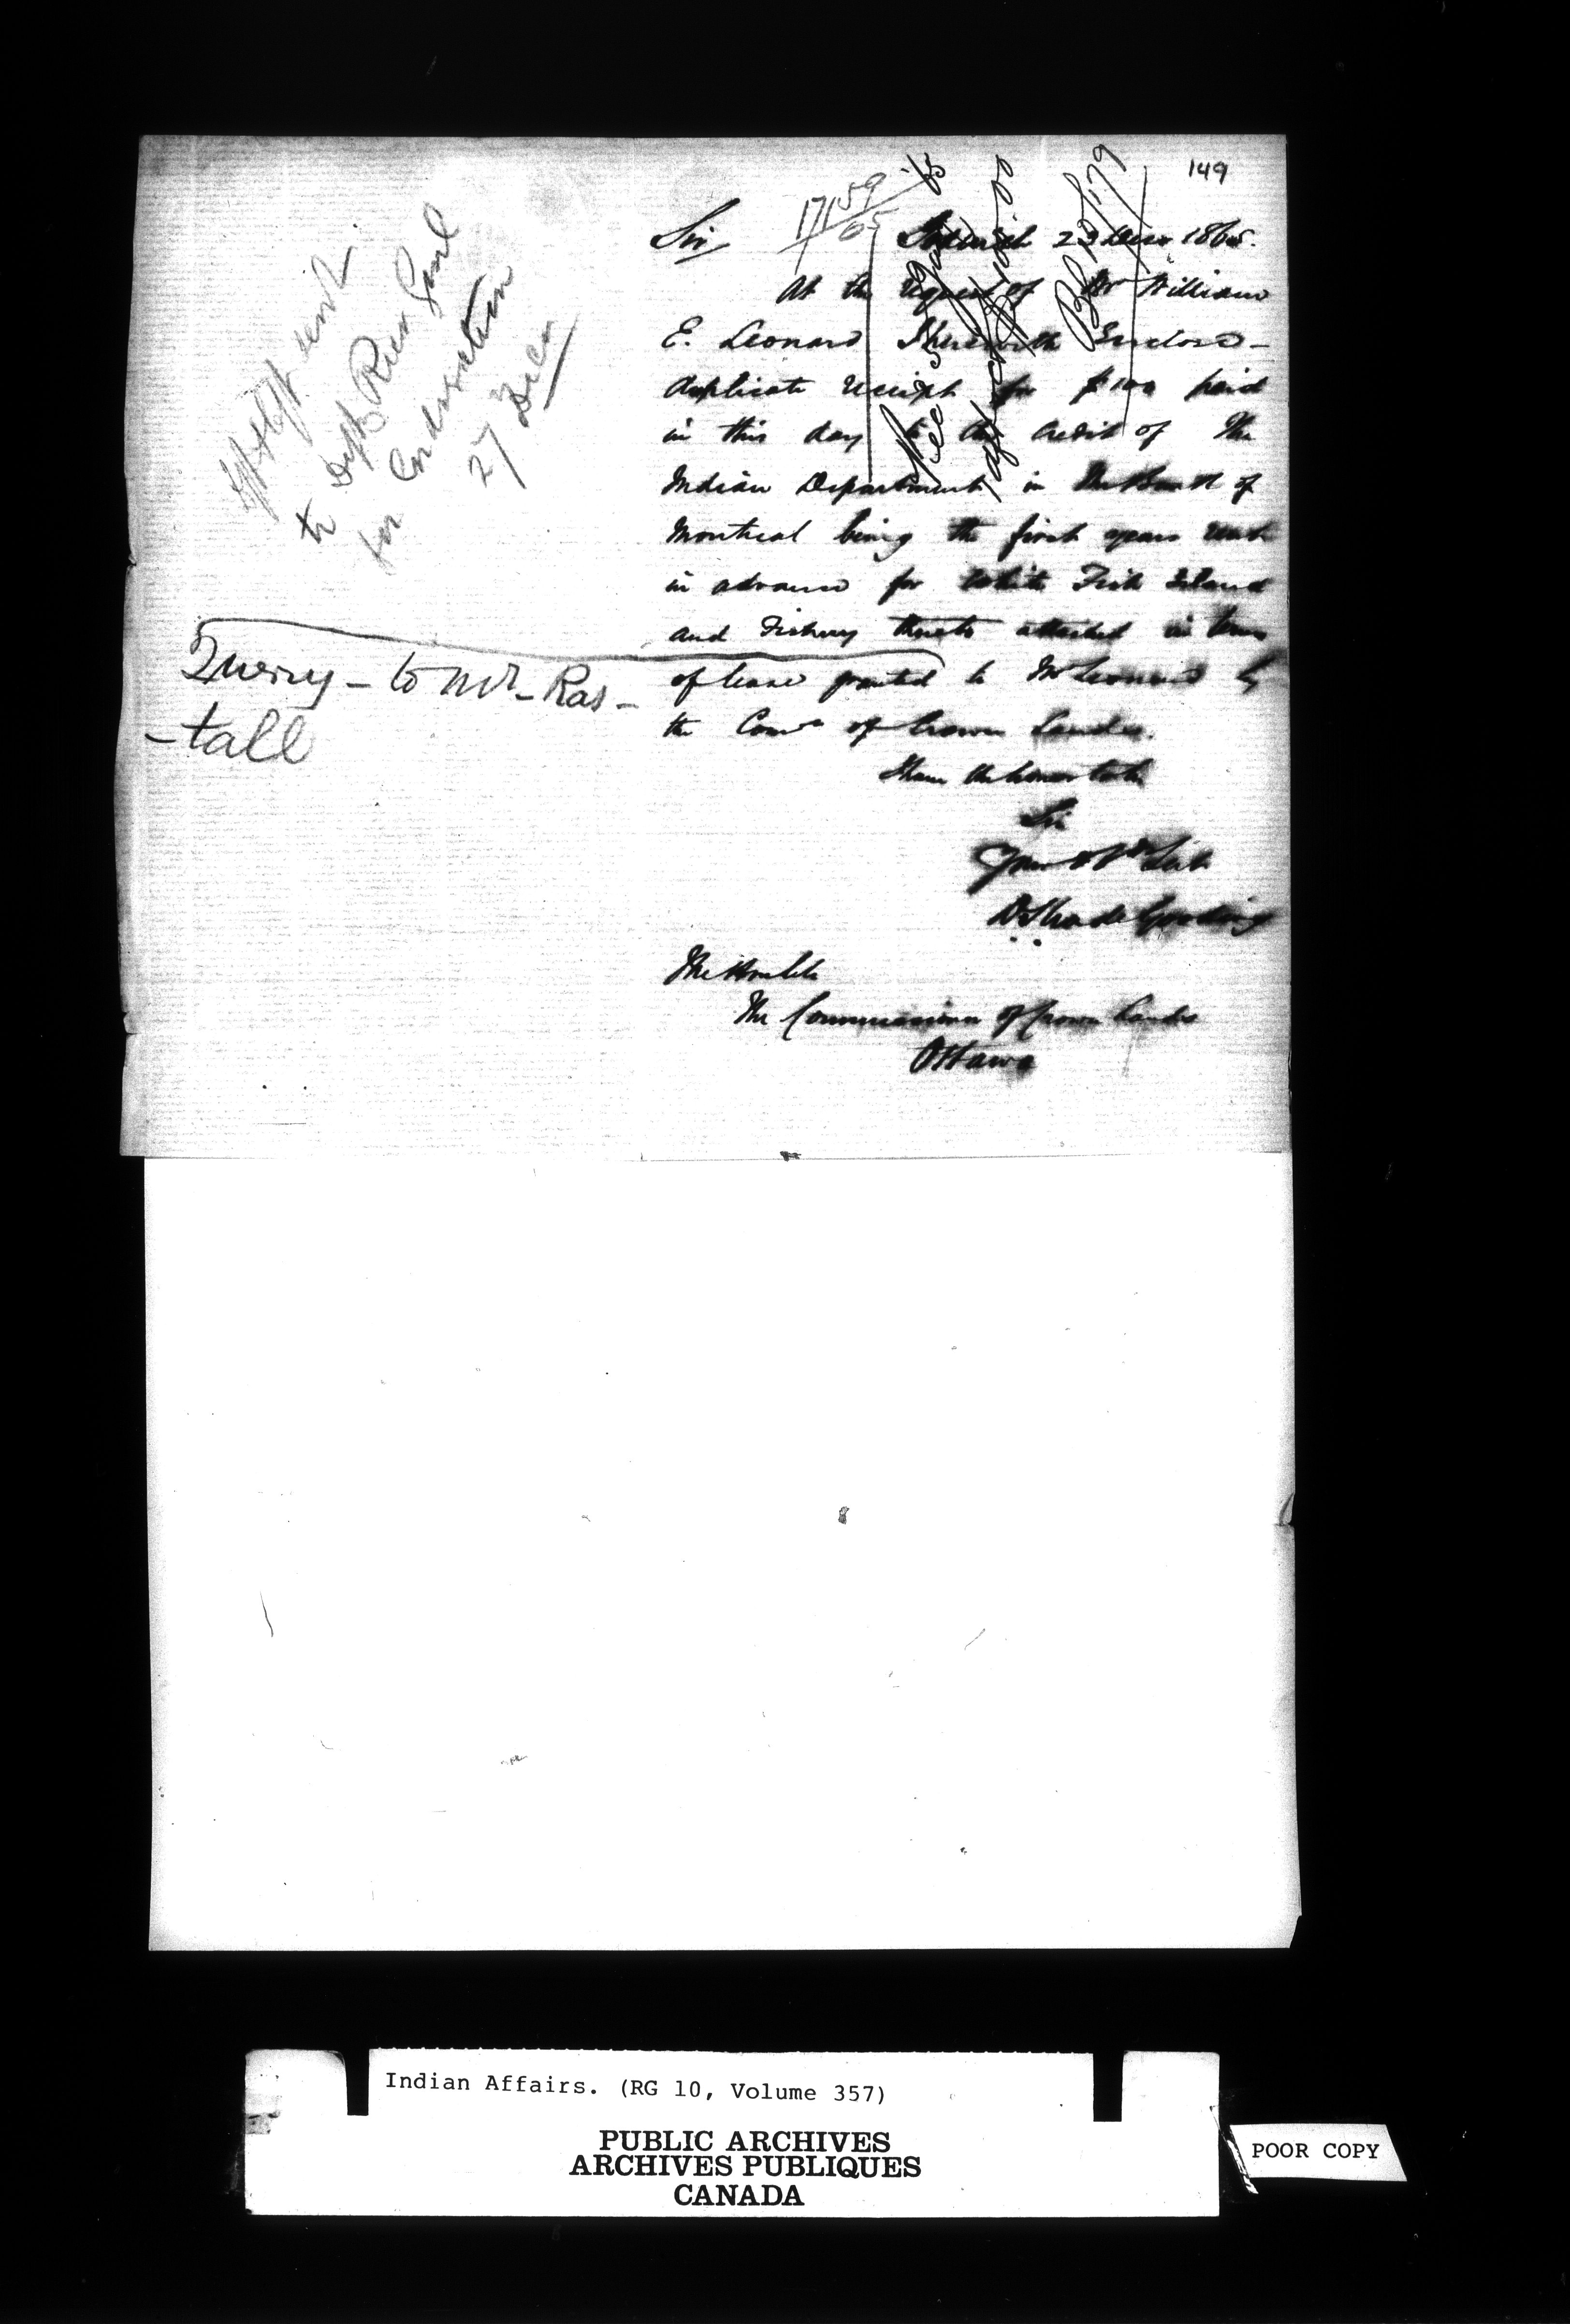 149
17159/65
Sir, Goderich 23 Decr 1865.
At the request of Mr William
E. Leonard I herewith Enclose
duplicate receipt for $100 paid
in this day to the Credit of The
Indian Department in The Bank of
Montreal being the first years rent
in advance for White Fish Island
and Fishery thereto attached in terms
of lease granted to Mr Leonard by
the Comr of Crown Lands.
I have the honor to be
Sir
Your Obt Svt
D Shade Gooding
The Honble
The Commissioner of Crown Lands
Ottawa
sent
to Depty Recr Genl
for Endorsation
27 Decr
Querry - to Mr. Ras-
-tall
Indian Affairs. (RG 10, Volume 357)
PUBLIC ARCHIVES
ARCHIVES PUBLIQUES
CANADA
POOR COPY